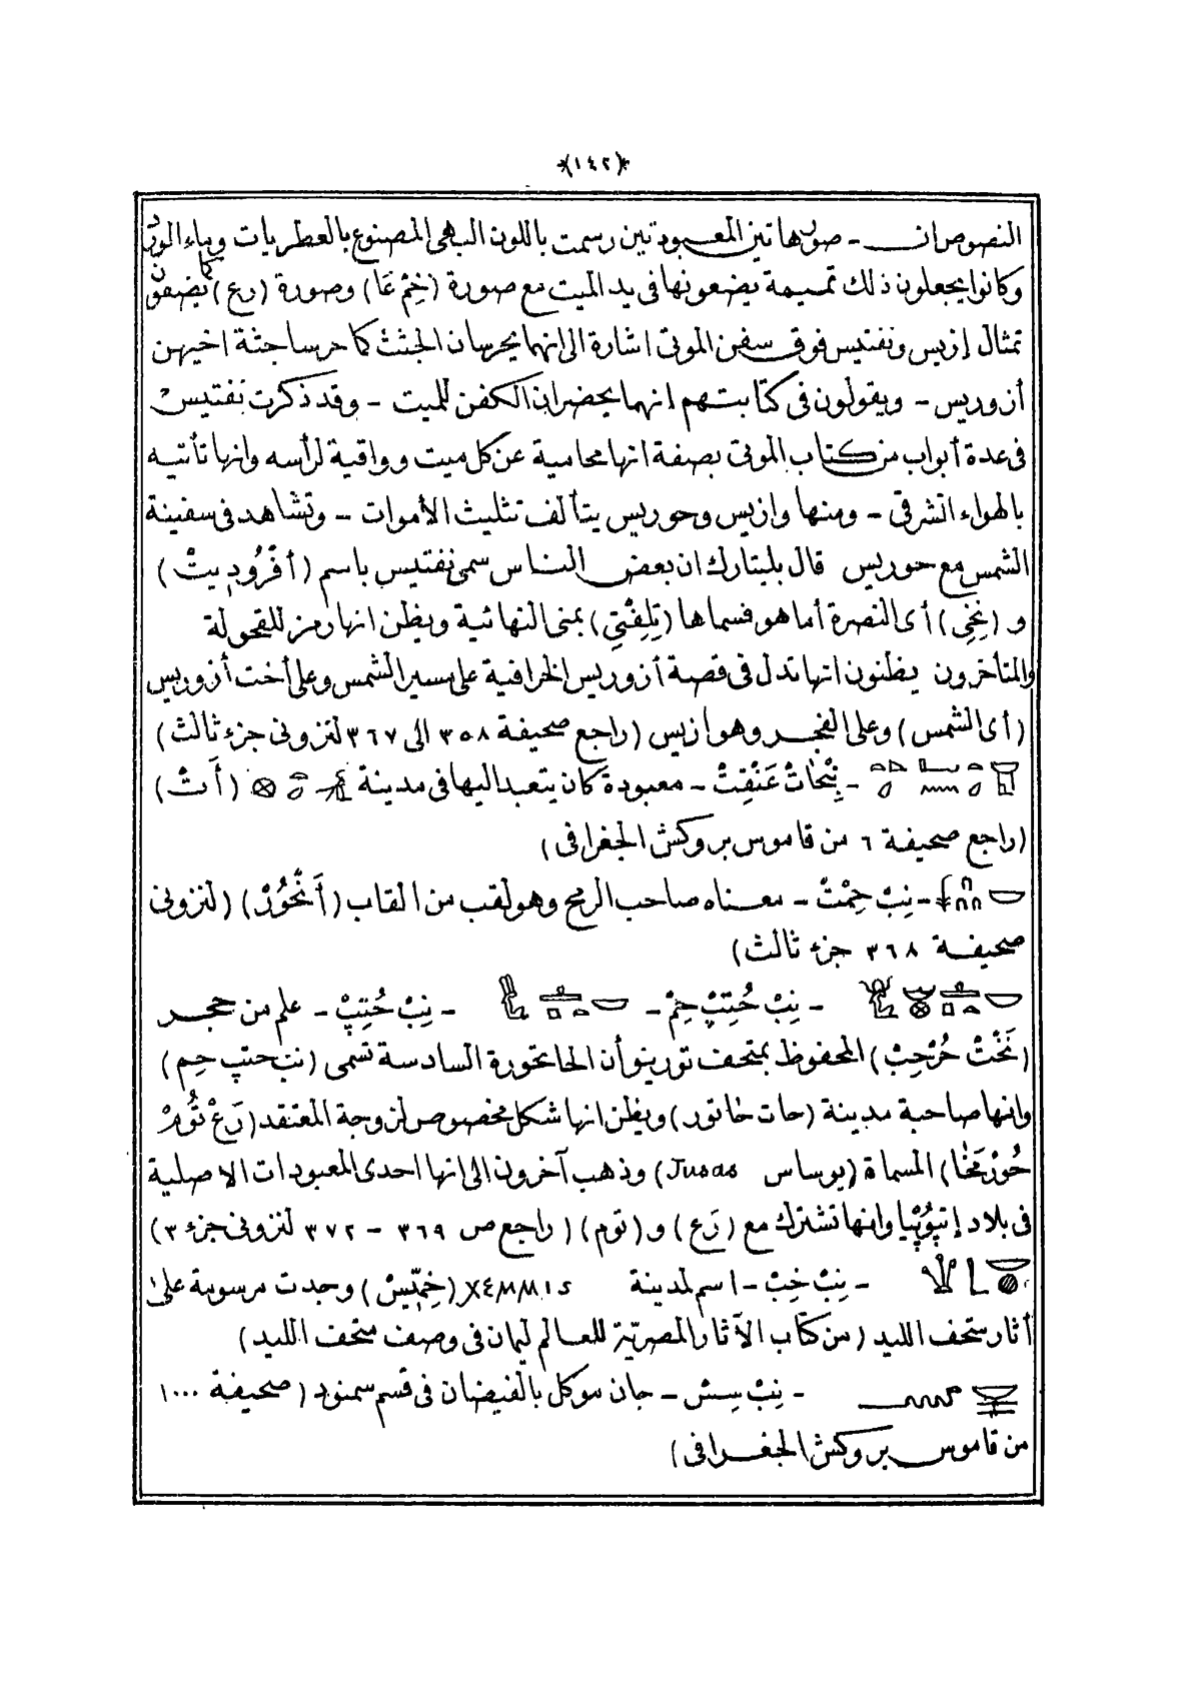 *(١٤٢)*
النصوص ان ـ صور هاتين المعبودتين رسمت باللون البهى المصنوع بالعطريات وبماء الورد
وكانوا يجعلون ذلك تميمة يضعونها فى يد الميت مع صورة (خِمْ عَا) وصورة (رع) كما يضعون
تمثال ازيس ونفتيس فوق سفن الموتى اشارة الى انهما يحرسان الجثث كما حرسا جثة اخيهن
أزوريس ـ ويقولون فى كتابتهم انهما يحضران الكفن للميت ـ وقد ذكرت نفتيس
فى عدة أبواب من كتاب الموتى بصفة انها محامية عن كل ميت وواقية لرأسه وانها تأتيه
بالهواء الشرقى ـ ومنها وازيس وحوريس يتألف تثليث الأموات ـ وتشاهد فى سفينة
الشمس مع حوريس قال بليتارك ان بعض الناس سمى نفتيس باسم (أفْرُودِيتْ)
و (نِخِى) أى النصرة أما هو فسماها (تِلِفْتِى) بمنى النهائية ويظن انها رمز للقحولة
والمتأخرون يظنون انها تدل فى قصة أزوريس الخرافية على سير الشمس وعلى أخت أزوريس
(أى الشمس) وعلى الفجر وهو ازيس (راجع صحيفة ٣٥٨ الى ٣٦٧ لنزونى جزء ثالث)
ـ نِبْحَاتْ عَنْقِتْ ـ معبودة كان يتعبد اليها فى مدينة (أَتْ)
(راجع صحيفة ٦ من قاموس بروكش الجغرافى)
ـ نِبْ حِمْتْ ـ معناه صاحب الرمح وهو لقب من القاب (أَنْحُورْ) (لنزونى
صحيفة ٣٦٨ جزء ثالث)
ـ نِبْ حُتِتِپْ حِمْ ـ ـ نِبْ حُتِتِپْ ـ علم من حجر
(نَخْتْ حُرْحِبْ) المحفوظ بمتحف تورينو أن الحاتحورة السادسة تسمى (نب حتپ حم)
وانها صاحبة مدينة (حات خاتور) ويظن انها شكل مخصوص لزوجة المعتقد (رَعْ تُومْ
حُورْ مَخَا) المسماة (يوساس Jusas) وذهب آخرون الى انها احدى المعبودات الاصلية
فى بلاد إتيُوپْيا وانها تشترك مع (رَع) و (توم) (راجع ص ٣٦٩ ـ ٣٧٢ لنزونى جزء ٣)
ـ نِبْ خِبْ ـ اسم لمدينة ΧεΜΜΙS (خِمِّيسْ) وجدت مرسومة على
أثار متحف الليد (من كتاب الآثار المصرية للعالم ليمان فى وصف متحف الليد)
ـ نِبْ سِسْ ـ جان موكل بالفيضان فى قسم سمنود (صحيفة ١٠٠٠
من قاموس بروكش الجغرافى)